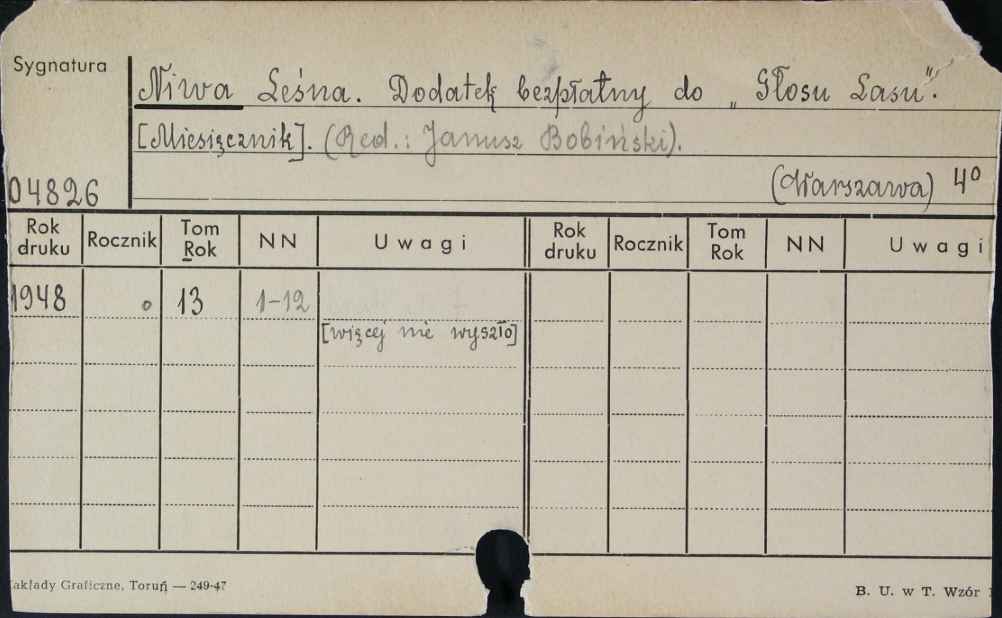 Sygnatura
Niwa Leśna. Dodatek bezpłatny do „Głosu Lasu".
[Miesięcznik]. (Red.: Janusz Bobiński).
04826 (Warszawa) 4º
Rok druku Rocznik Tom Rok NN Uwagi Rok druku Rocznik Tom Rok NN Uwagi
1948 o 13 1-12
[więcej nie wyszło]
akłady Graficzne, Toruń — 249-47 B. U. w T. Wzór